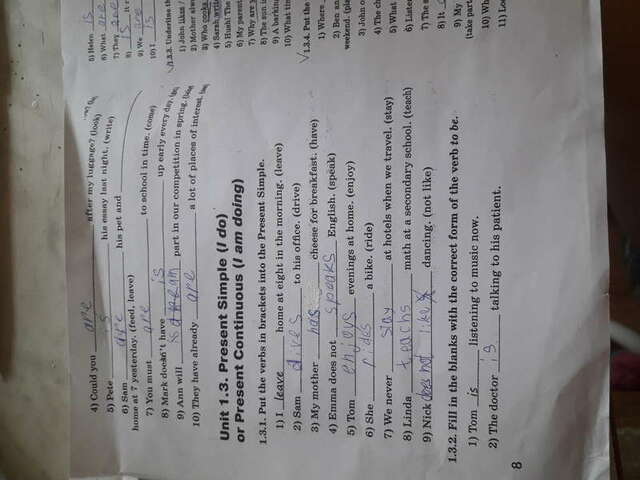 4) Could you are after my luggage? (look)
5) Pete is his essay last night. (write)
6) Sam are his pet and
home at 7 yesterday. (feed, leave)
7) You must are to school in time. (come)
8) Mark doesn't have is up early every day.
9) Ann will part in our competition in spring.
10) They have already are a lot of places of interest.
Unit 1.3. Present Simple (I do)
or Present Continuous (I am doing)
1.3.1. Put the verbs in brackets into the Present Simple.
1) I leave home at eight in the morning. (leave)
2) Sam dives to his office. (drive)
3) My mother has cheese for breakfast. (have)
4) Emma does not speaks English. (speak)
5) Tom enjoys evenings at home. (enjoy)
6) She rides a bike. (ride)
7) We never stay at hotels when we travel. (stay)
8) Linda teachs math at a secondary school. (teach)
9) Nick does not like dancing. (not like)
1.3.2. Fill in the blanks with the correct form of the verb to be.
1) Tom is listening to music now.
2) The doctor is talking to his patient.
8
5) Helen is
6) What are
7) They are
8) It is
9) We are
10) I is
1.3.3. Underline th
1) John likes /
2) Mother
3) Who cooks
4) Sarah
5) Hush! The
6) My parent
7) Why are
8) The sun
9) A barking
10) What time
1.3.4. Put the
1) Where
2) Ben an
weekend. (pla
3) John
4) The
5) What
6) Listen
7) The
8) It
9) My
(take part
10) Wh
11) Loo